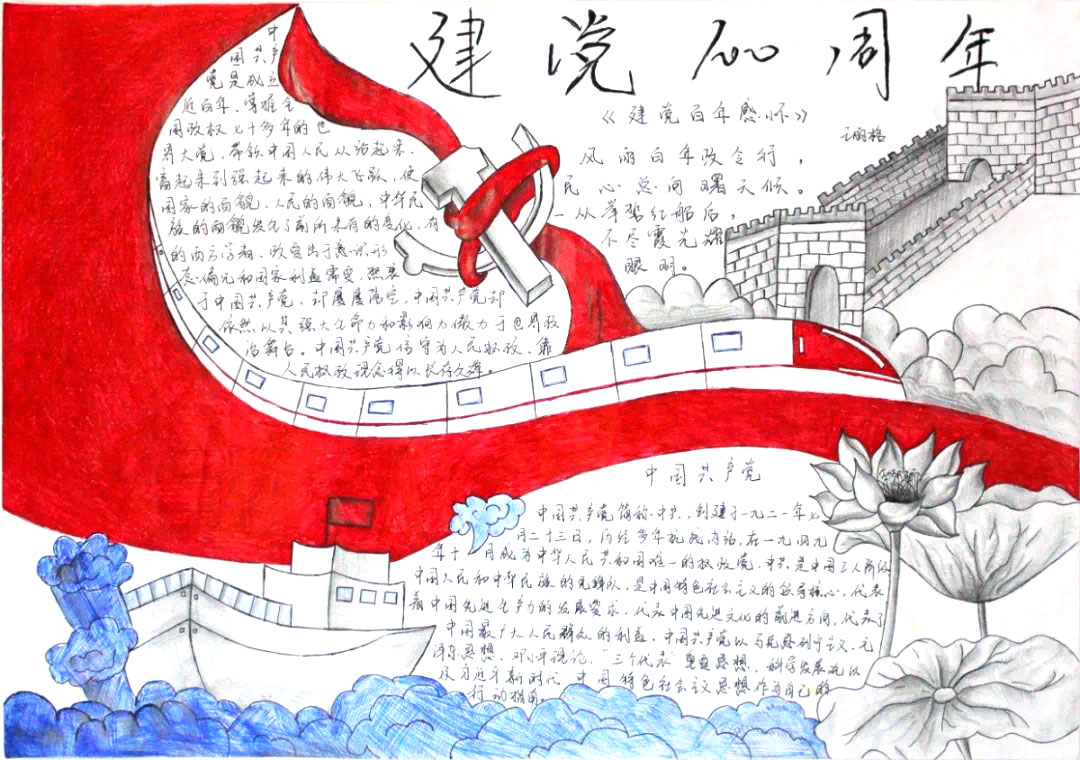 建党100周年
《建党百年感怀》
风雨百年政令行，
民心总向曙天倾。
一从举帮红船后，
不尽霞光耀
眼明。
中
国共产
党是成立
近百年、掌握全
国政权七十多年的世
界大党，带领中国人民从站起来、
富起来到强起来的伟大飞跃，使
国家的面貌、人民的面貌、中华民
族的面貌发生了前所未有的变化，有
的西方学者、政客出于意识形
态偏见和国家利益需要，热衷
于中国共产党，却屡屡落空，中国共产党却
依然以其强大生命力和影响力傲力于世界政
治舞台。中国共产党信守为人民执政、靠
人民执政理念得以长存久辉。
中国共产党
中国共产党简称中共，创建于一九二一年七
月二十三日，历经多年抗战内治，在一九四九
年十月成为中华人民共和国唯一的执政党，中共是中国工人阶级
中国人民和中华民族的先锋队，是中国特色社会主义的领导核心，代表
着中国先进生产力的发展要求，代表中国先进文化的前进方向，代表了
中国最广大人民群众的利益，中国共产党以马克思列宁主义、毛
泽东思想、邓小平理论、“三个代表”重要思想、科学发展观以
及习近平新时代中国特色社会主义思想作为自己的
行动指南。